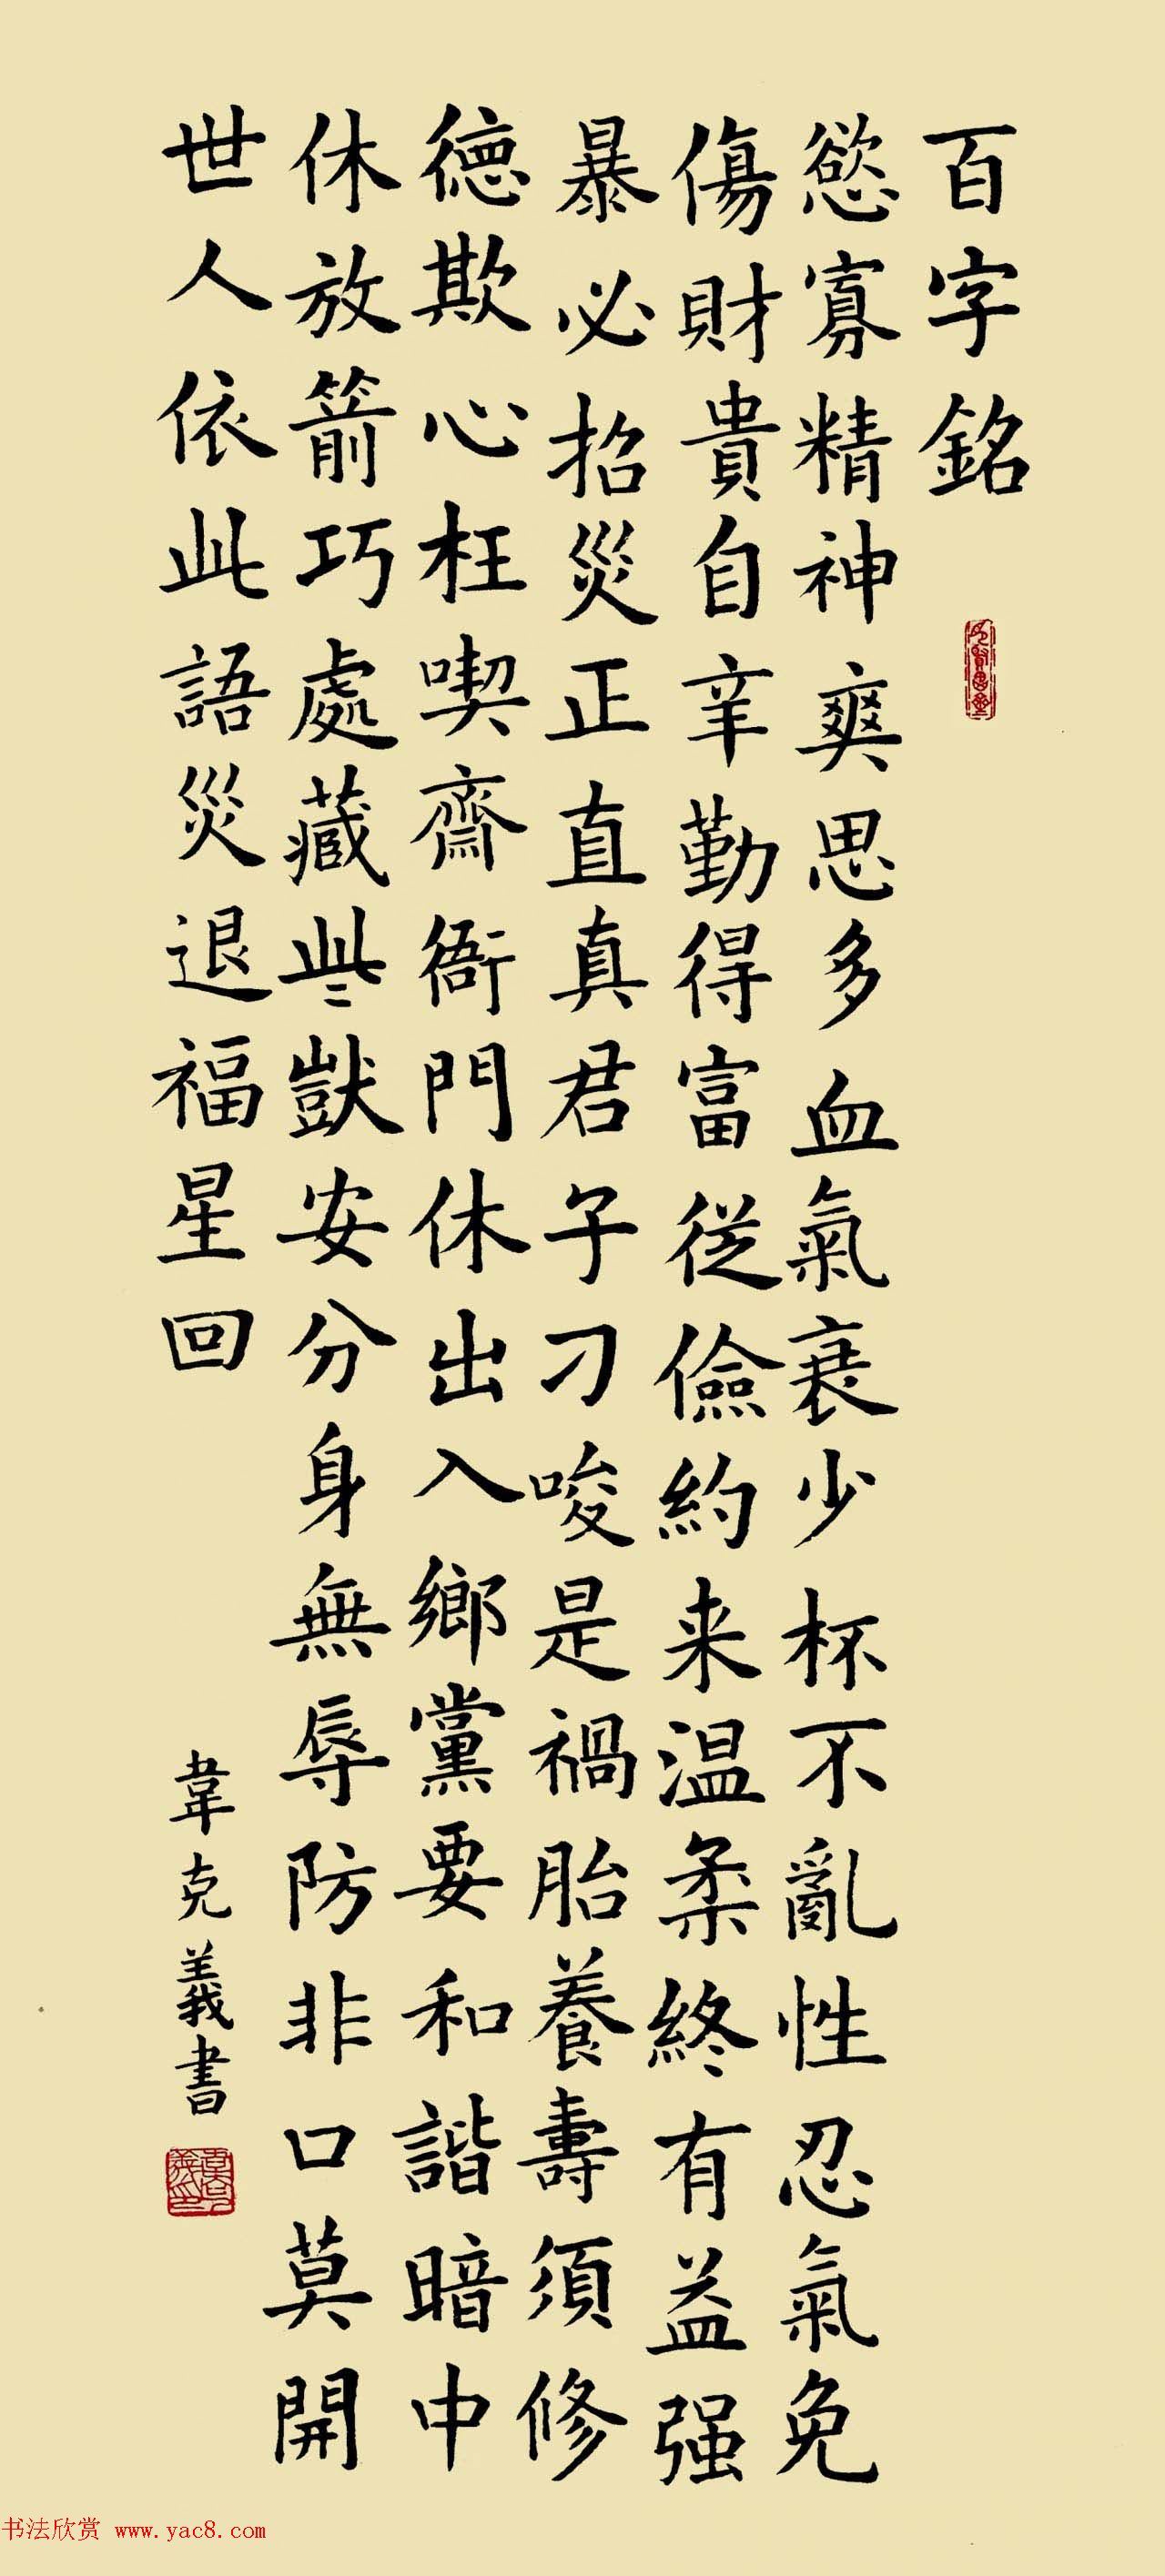 百字銘
慾寡精神爽思多血氣衰少杯不亂性忍氣免
傷財貴自辛勤得富従儉約来温柔終有益强
暴必招災正直真君子刁唆是禍胎養壽須修
徳欺心枉喫齋衙門休出入鄉黨要和諧暗中
休放箭巧處藏些獃安分身無辱防非口莫開
世人依此語災退福星回
韋克義書
书法欣赏 www.yac8.com